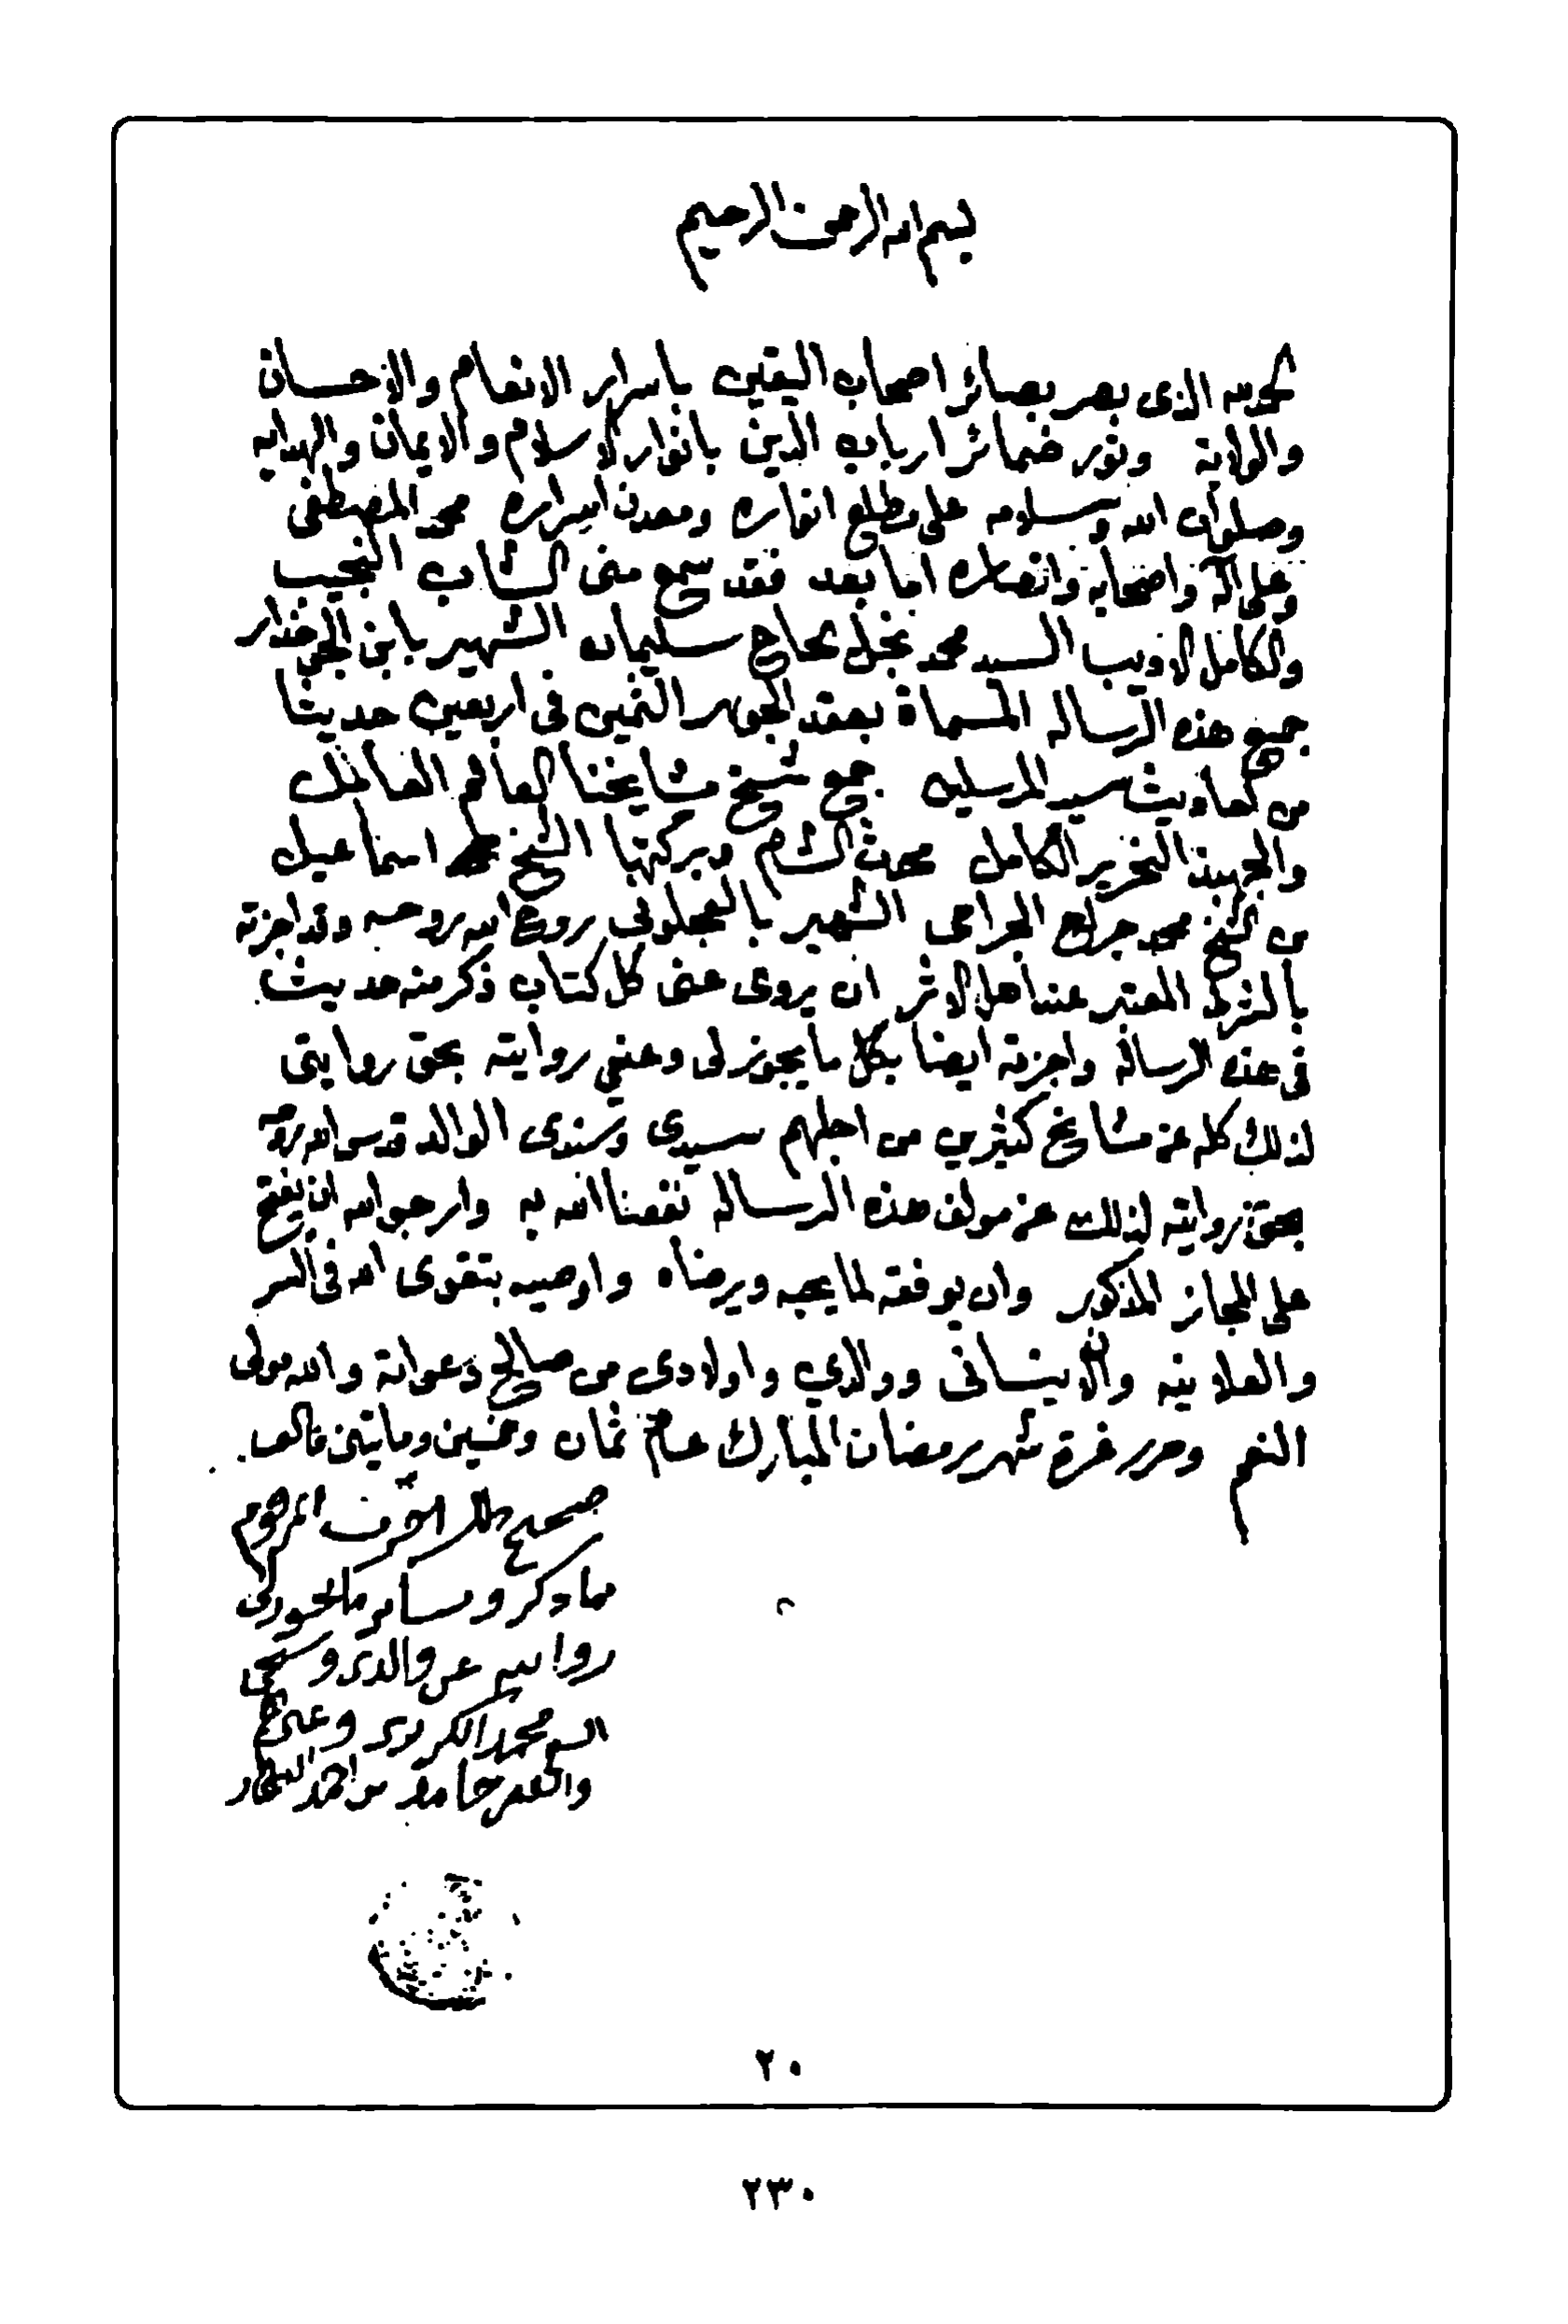 بسم الله الرحمن الرحيم
الحمد لله الذى بصر بصائر اصحاب اليقين باسرار الانعام والاحسان
والولاية ونور ضمائر ارباب الدين بانوار الاسلام والايمان والهدايه
وصلوات الله وسلامه على مطلع انواره ومعدن اسراره محمد المصطفى
وعلى اله واصحابه وانصاره اما بعد فقد سمع منى الشاب النجيب
والكامل الاديب السيد محمد نجل الحاج سليمان الشهير بابن
جميع هذه الرساله المسماة بعقد الجوهر الثمين فى اربعين حديثا
من احاديث سيد المرسلين جمع شيخ مشايخنا العالم الفاضل
والجهبذ النحرير الكامل محدث الشام وبركتها الشيخ اسماعيل
بن الشيخ محمد جراح الجراحى الشهير بالعجلونى روح الله روحه وقد اجزته
بالشرط المعتبر عند اهل الاثر ان يروى عنى كل كتاب ذكر منه حديث
فى هذه الرسالة واجزته ايضا بكل ما يجوز لى وعنى روايته بحق روايتى
لذلك كله عن مشايخ كثيرين من اجلهم سيدى وسندى الوالد قدس الله
بحق روايته لذلك عن مولف هذه الرساله نفعنا الله به وارجو الله ان يفتح
على المجاز المذكور وان يوفقه لما يحبه ويرضاه واوصيه بتقوى الله فى السر
والعلانيه والا ينسانى ووالدي واولادى من صالح دعواته والله مولى
النعم وحرر غرة شهر رمضان المبارك عام ثمان وخمسين ومايتين والف
صحيح اجزت المرحوم
بما ذكر وسائر ما يجوز لى
روايته عن والدى وشيخى
السيد محمد الكردى وغيرهم
والحقير حامد بن احمد العطار
٢٠
٢٣٠